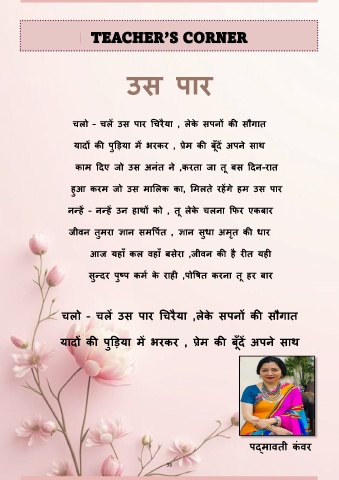 TEACHER'S CORNER
उस पार
चलो - चलें उस पार चिरैया , लेके सपनों की सौगात
यादों की पुड़िया में भरकर , प्रेम की बूँदें अपने साथ
काम दिए जो उस अनंत ने ,करता जा तू बस दिन-रात
हुआ करम जो उस मालिक का, मिलते रहेंगे हम उस पार
नन्हें - नन्हें उन हाथों को , तू लेके चलना फिर एकबार
जीवन तुमरा ज्ञान समर्पित , ज्ञान सुधा अमृत की धार
आज यहाँ कल वहाँ बसेरा ,जीवन की है रीत यही
सुन्दर पुष्प कर्म के राही ,पोषित करना तू हर बार
चलो - चलें उस पार चिरैया ,लेके सपनों की सौगात
यादों की पुड़िया में भरकर , प्रेम की बूँदें अपने साथ
पद्मावती कंवर